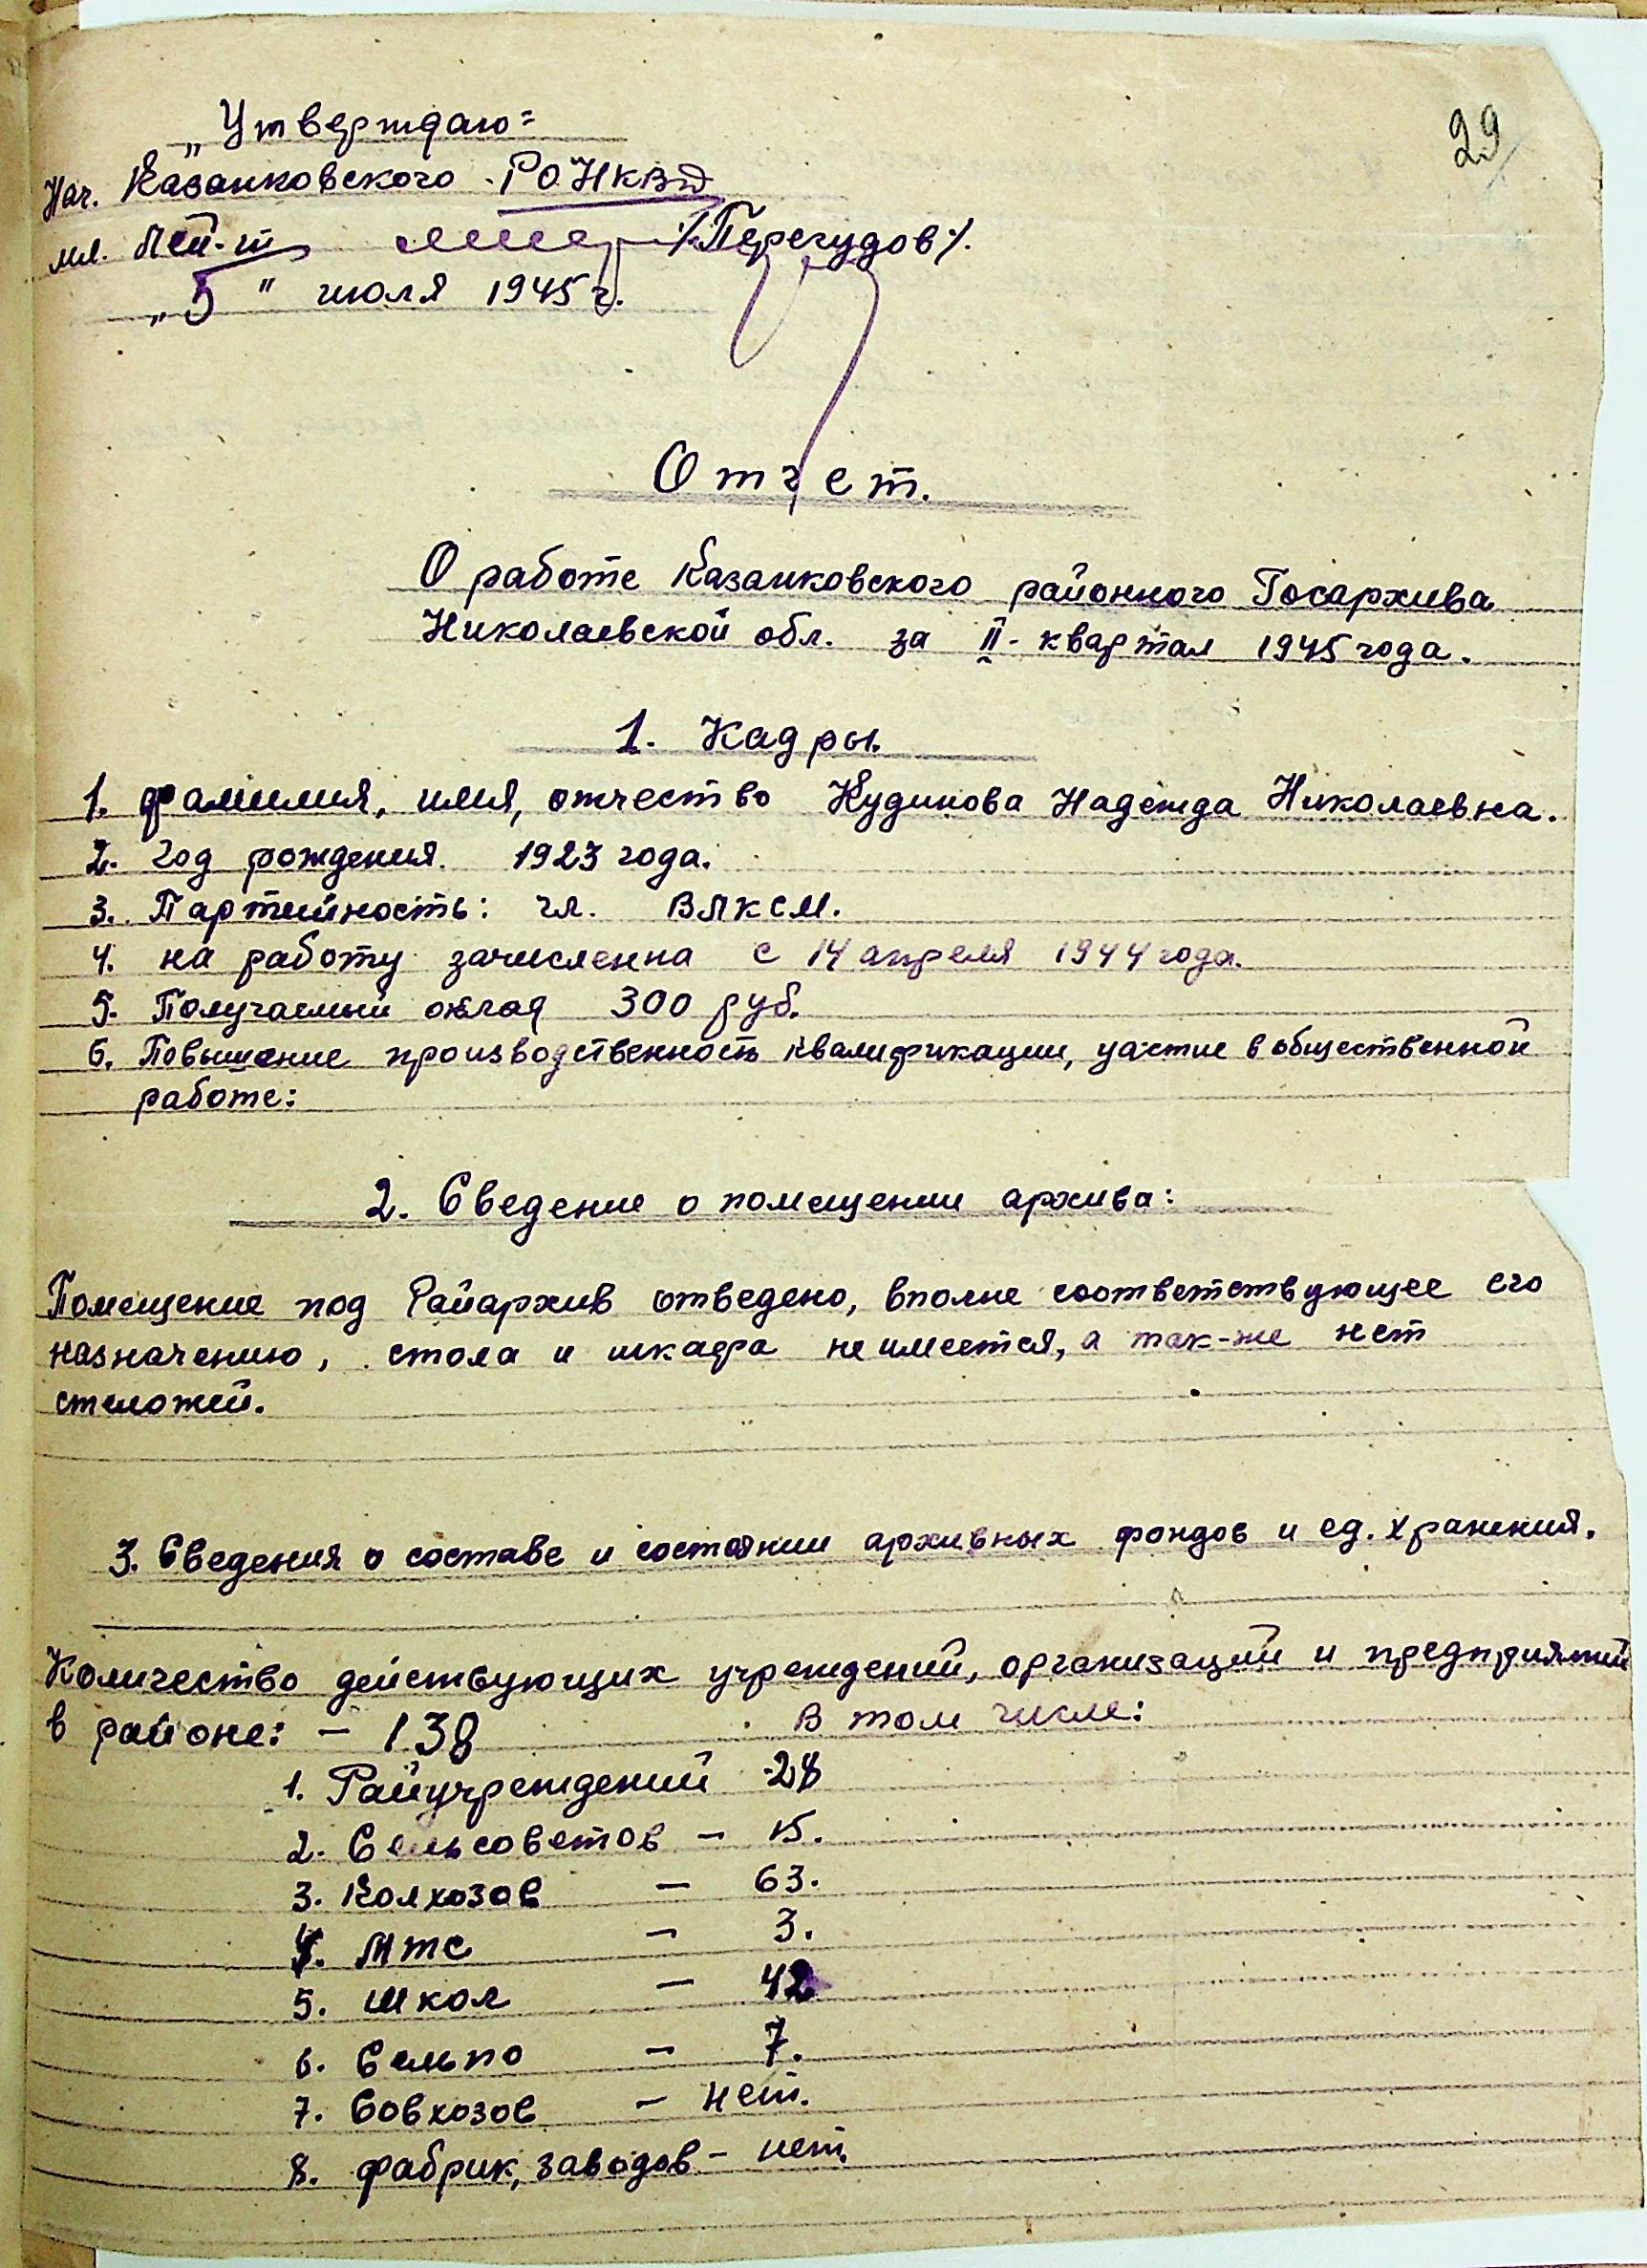 29
„Утверждаю"
Нач. Казанковского РО НКВД
мл. лей-т /Перегудов/.
„5" июля 1945 г.
Отчет.
О работе Казанковского районного Госархива
Николаевской обл. за II-квартал 1945 года.
1. Кадры.
1. Фамилия, имя, отчество Кудинова Надежда Николаевна.
2. Год рождения. 1923 года.
3. Партийность: чл. ВЛКСМ.
4. на работу зачисленна с 14 апреля 1944 года.
5. Получаемый оклад 300 руб.
6. Повышение производственность квалификации, участие в общественной
работе:
2. Сведение о помещении архива:
Помещение под Райархив отведено, вполне соответствующее его
назначению, стола и шкафа не имеется, а так-же нет
стеложей.
3. Сведения о составе и состоянии архивных фондов и ед. хранения.
Количество действующих учреждений, организаций и предприятий
в районе: - 138 В том числе:
1. Райучреждений - 28
2. Сельсоветов - 15.
3. Колхозов - 63.
4. МТС - 3.
5. Школ - 42
6. Сельпо - 7.
7. Совхозов - нет.
8. Фабрик, заводов - нет.